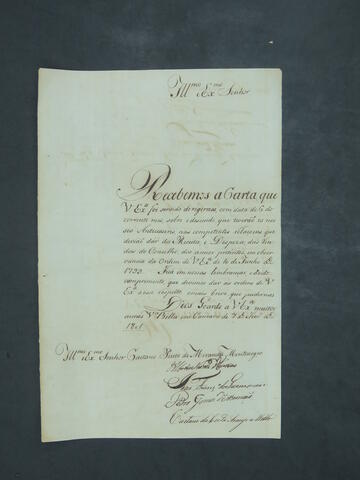 Illmo e Exmo Senhor
Recebemos a Carta que
V. Exa foi servido dirigirnos, com data de 6 do
corrente mez, sobre o descuido, que tiverão os nos
sos Antecessores, nas competentes relaçoens que
devião dar da Receita, e Despeza, das Ren
das do Conselho, dos annos preteritos, na obser
vancia da Ordem de V. Exa de 6 de Junho de
1799. Fica em nossa lembrança, o devido
cumprimento que devemos dar as ordens de V.
Exa a esse respeito com a brev que pudermos
Deos Guarde a V. Exa muitos
annos Va Bella em Camara de
1801
Illmo e Exmo Senhor Caetano Pinto de Miranda Montenegro
Caetano da Costa Araujo e Mello